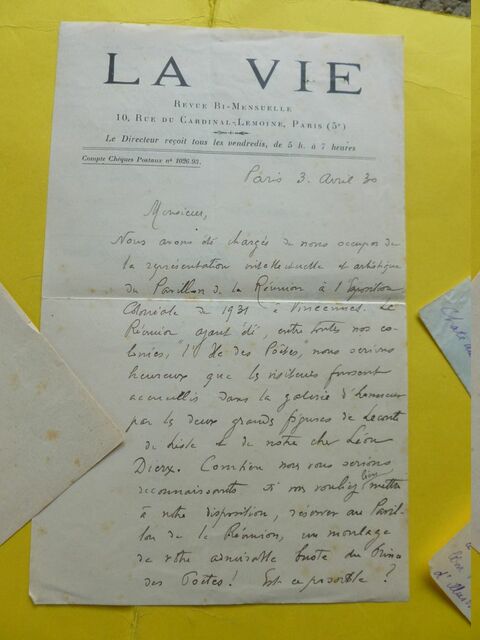 LA VIE
Revue Bi-Mensuelle
10, Rue du Cardinal-Lemoine, Paris (5e)
Le Directeur reçoit tous les vendredis, de 5 h. à 7 heures
Compte Chèques Postaux n° 1026.93.
Paris 3. Avril 30
Monsieur,
Nous avons été chargés de nous occuper de
la représentation intellectuelle et artistique
du Pavillon de la Réunion à l'Exposition
Coloniale de 1931 à Vincennes. La
Réunion ayant été, entre toutes nos co-
lonies, "l'Ile des Poètes," nous serions
heureux que les visiteurs fussent
accueillis dans la galerie d'honneur
par les deux grands figures de Leconte
de Lisle et de notre cher Léon
Dierx. Combien nous vous serions
reconnaissants si vous vouliez bien mettre
à notre disposition, réserver au Pavil-
lon de la Réunion, un moulage
de votre admirable buste du Prince
des Poètes! Est ce possible?